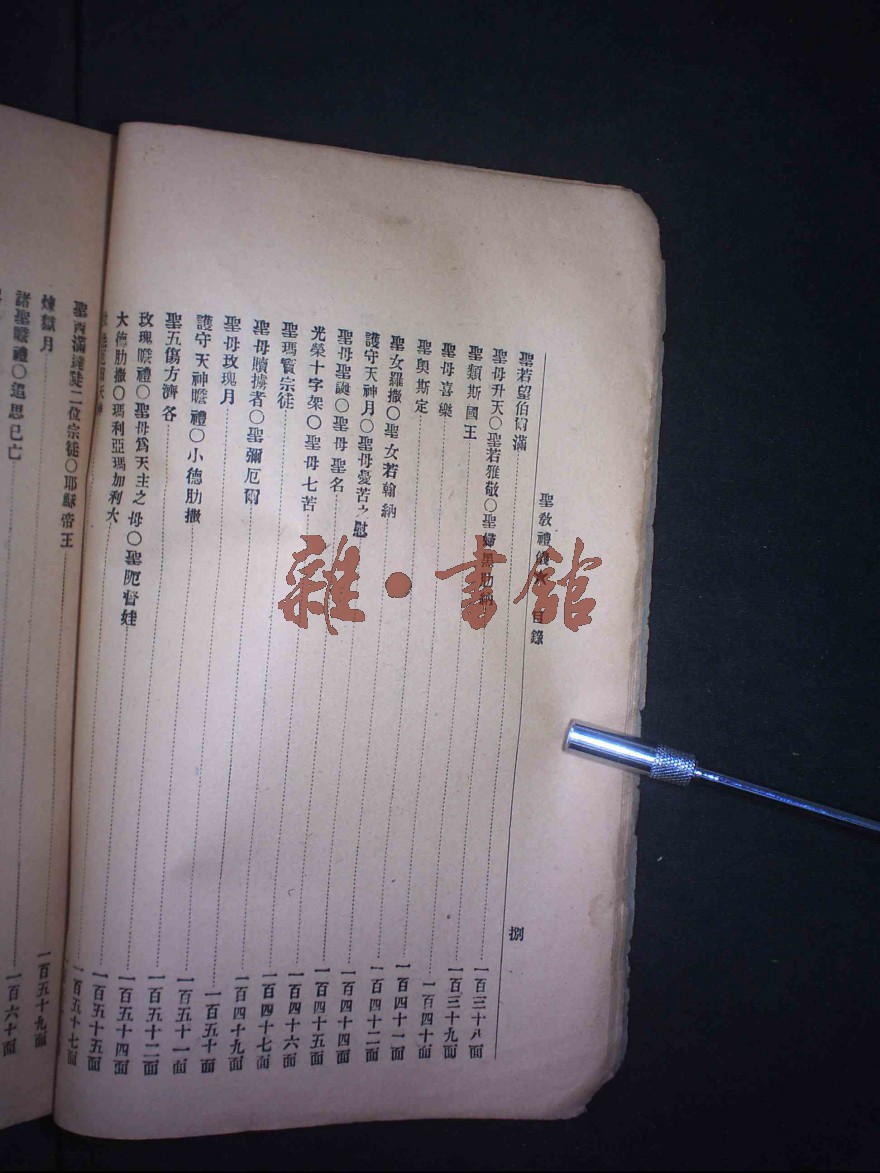 聖教禮儀 目錄 捌
聖若望伯爾滿 一百三十八面
聖母升天〇聖若雅敬〇聖 黑肋納 一百三十九面
聖類斯國王 一百四十面
聖母喜樂 一百四十一面
聖奧斯定 一百四十二面
聖女羅撒〇聖女若翰納 一百四十四面
護守天神月〇聖母憂苦之慰 一百四十五面
聖母聖誕〇聖母聖名 一百四十六面
光榮十字架〇聖母七苦 一百四十七面
聖瑪竇宗徒 一百四十九面
聖母贖擄者〇聖彌厄爾 一百五十面
聖母玫瑰月 一百五十一面
護守天神瞻禮〇小德肋撒 一百五十二面
聖五傷方濟各 一百五十四面
玫瑰瞻禮〇聖母爲天主之母〇聖陁督娃 一百五十五面
大德肋撒〇瑪利亞瑪加利大 一百五十七面
聖西滿達陡二位宗徒〇耶穌帝王 一百五十九面
煉獄月 一百六十面
諸聖瞻禮〇追思已亡
雜·書館